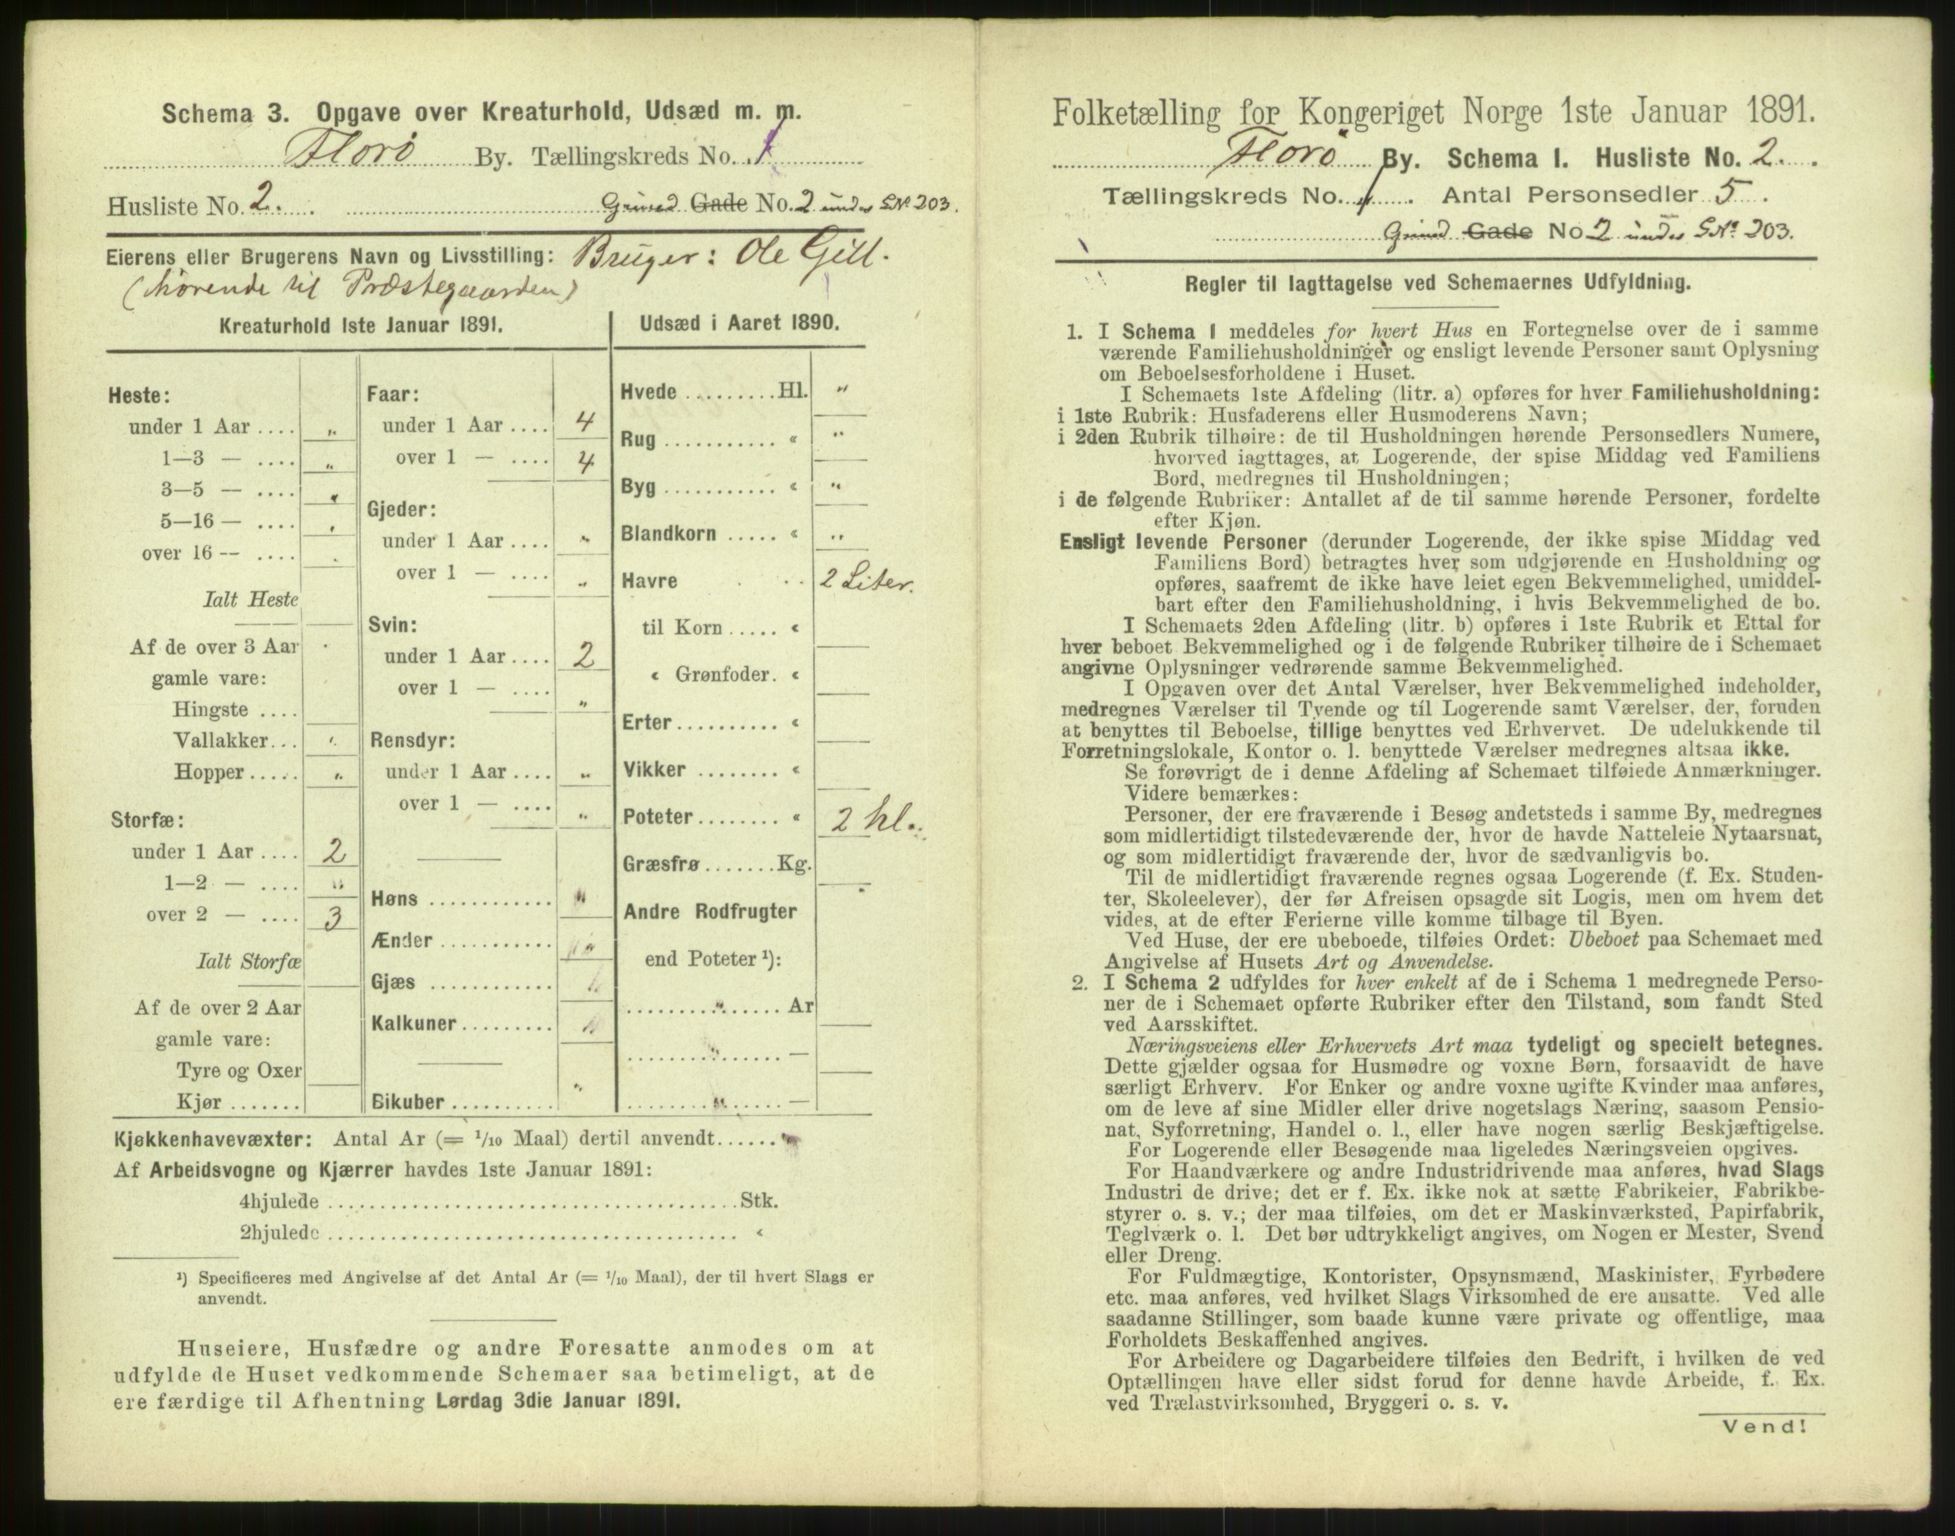 Schema 3. Opgave over Kreaturhold, Udsæd m. m.
Florø By. Tællingskreds No. 1
Husliste No. 2. Grund Gade No. 2 under GNo 203.
Eierens eller Brugerens Navn og Livsstilling: Bruger: Ole Gill.
(hørende til Præstegaarden)
Kreaturhold 1ste Januar 1891.
Heste:
under 1 Aar .... "
1—3 — .... "
3—5 — .... "
5—16 — .... "
over 16 — .... "
Ialt Heste
Af de over 3 Aar
gamle vare:
Hingste ....
Vallakker... "
Hopper ..... "
Storfæ:
under 1 Aar .... 2
1—2 — .... "
over 2 — .... 3
Ialt Storfæ
Af de over 2 Aar
gamle vare:
Tyre og Oxer
Kjør .......
Faar:
under 1 Aar .... 4
over 1 — .... 4
Gjeder:
under 1 Aar .... "
over 1 — .... "
Svin:
under 1 Aar .... 2
over 1 — .... "
Rensdyr:
under 1 Aar .... "
over 1 — .... "
Høns ............ "
Ænder ........... "
Gjæs ............ "
Kalkuner ......... "
Bikuber .......... "
Udsæd i Aaret 1890.
Hvede ......... Hl. "
Rug ........... « "
Byg ........... « "
Blandkorn ..... « "
Havre .. 2 Liter.
til Korn ..... «
« Grønfoder. «
Erter .......... «
Vikker ........ «
Poteter ........ « 2 hl.
Græsfrø ....... Kg.
Andre Rodfrugter
end Poteter ¹):
........"....... Ar
........"....... —
........"....... —
Kjøkkenhavevæxter: Antal Ar (= 1/10 Maal) dertil anvendt...... "
Af Arbeidsvogne og Kjærrer havdes 1ste Januar 1891:
4hjulede .................................... Stk.
2hjulede .................................... «
¹) Specificeres med Angivelse af det Antal Ar (= 1/10 Maal), der til hvert Slags er
anvendt.
Huseiere, Husfædre og andre Foresatte anmodes om at
udfylde de Huset vedkommende Schemaer saa betimeligt, at de
ere færdige til Afhentning Lørdag 3die Januar 1891.
Folketælling for Kongeriget Norge 1ste Januar 1891.
Florø By. Schema I. Husliste No. 2.
Tællingskreds No. 1. Antal Personsedler 5.
Grund Gade No 2 under GNo. 203.
Regler til Iagttagelse ved Schemaernes Udfyldning.
1. I Schema I meddeles for hvert Hus en Fortegnelse over de i samme
værende Familiehusholdninger og ensligt levende Personer samt Oplysning
om Beboelsesforholdene i Huset.
I Schemaets 1ste Afdeling (litr. a) opføres for hver Familiehusholdning:
i 1ste Rubrik: Husfaderens eller Husmoderens Navn;
i 2den Rubrik tilhøire: de til Husholdningen hørende Personsedlers Numere,
hvorved iagttages, at Logerende, der spise Middag ved Familiens
Bord, medregnes til Husholdningen;
i de følgende Rubriker: Antallet af de til samme hørende Personer, fordelte
efter Kjøn.
Ensligt levende Personer (derunder Logerende, der ikke spise Middag ved
Familiens Bord) betragtes hver som udgjørende en Husholdning og
opføres, saafremt de ikke have leiet egen Bekvemmelighed, umiddel-
bart efter den Familiehusholdning, i hvis Bekvemmelighed de bo.
I Schemaets 2den Afdeling (litr. b) opføres i 1ste Rubrik et Ettal for
hver beboet Bekvemmelighed og i de følgende Rubriker tilhøire de i Schemaet
angivne Oplysninger vedrørende samme Bekvemmelighed.
I Opgaven over det Antal Værelser, hver Bekvemmelighed indeholder,
medregnes Værelser til Tyende og til Logerende samt Værelser, der, foruden
at benyttes til Beboelse, tillige benyttes ved Erhvervet. De udelukkende til
Forretningslokale, Kontor o. l. benyttede Værelser medregnes altsaa ikke.
Se forøvrigt de i denne Afdeling af Schemaet tilføiede Anmærkninger.
Videre bemærkes:
Personer, der ere fraværende i Besøg andetsteds i samme By, medregnes
som midlertidigt tilstedeværende der, hvor de havde Natteleie Nytaarsnat,
og som midlertidigt fraværende der, hvor de sædvanligvis bo.
Til de midlertidigt fraværende regnes ogsaa Logerende (f. Ex. Studen-
ter, Skoleelever), der før Afreisen opsagde sit Logis, men om hvem det
vides, at de efter Ferierne ville komme tilbage til Byen.
Ved Huse, der ere ubeboede, tilføies Ordet: Ubeboet paa Schemaet med
Angivelse af Husets Art og Anvendelse.
2. I Schema 2 udfyldes for hver enkelt af de i Schema 1 medregnede Perso-
ner de i Schemaet opførte Rubriker efter den Tilstand, som fandt Sted
ved Aarsskiftet.
Næringsveiens eller Erhvervets Art maa tydeligt og specielt betegnes.
Dette gjælder ogsaa for Husmødre og voxne Børn, forsaavidt de have
særligt Erhverv. For Enker og andre voxne ugifte Kvinder maa anføres,
om de leve af sine Midler eller drive nogetslags Næring, saasom Pensio-
nat, Syforretning, Handel o. l., eller have nogen særlig Beskjæftigelse.
For Logerende eller Besøgende maa ligeledes Næringsveien opgives.
For Haandværkere og andre Industridrivende maa anføres, hvad Slags
Industri de drive; det er f. Ex. ikke nok at sætte Fabrikeier, Fabrikbe-
styrer o. s. v.; der maa tilføies, om det er Maskinværksted, Papirfabrik,
Teglværk o. l. Det bør udtrykkeligt angives, om Nogen er Mester, Svend
eller Dreng.
For Fuldmægtige, Kontorister, Opsynsmænd, Maskinister, Fyrbødere
etc. maa anføres, ved hvilket Slags Virksomhed de ere ansatte. Ved alle
saadanne Stillinger, som baade kunne være private og offentlige, maa
Forholdets Beskaffenhed angives.
For Arbeidere og Dagarbeidere tilføies den Bedrift, i hvilken de ved
Optællingen have eller sidst forud for denne havde Arbeide, f. Ex.
ved Trælastvirksomhed, Bryggeri o. s. v.
Vend!